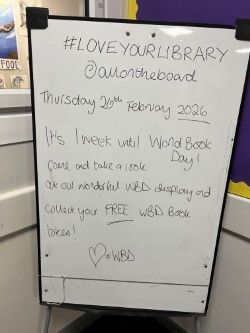 FOOL
#LOVEYOURLIBRARY
@allontheboard
Thursday 26th February 2026
It's 1 week until World Book
Day!
Come and take a look
at our wonderful WBD display and
collect your FREE WBD Book
token!
#WBD